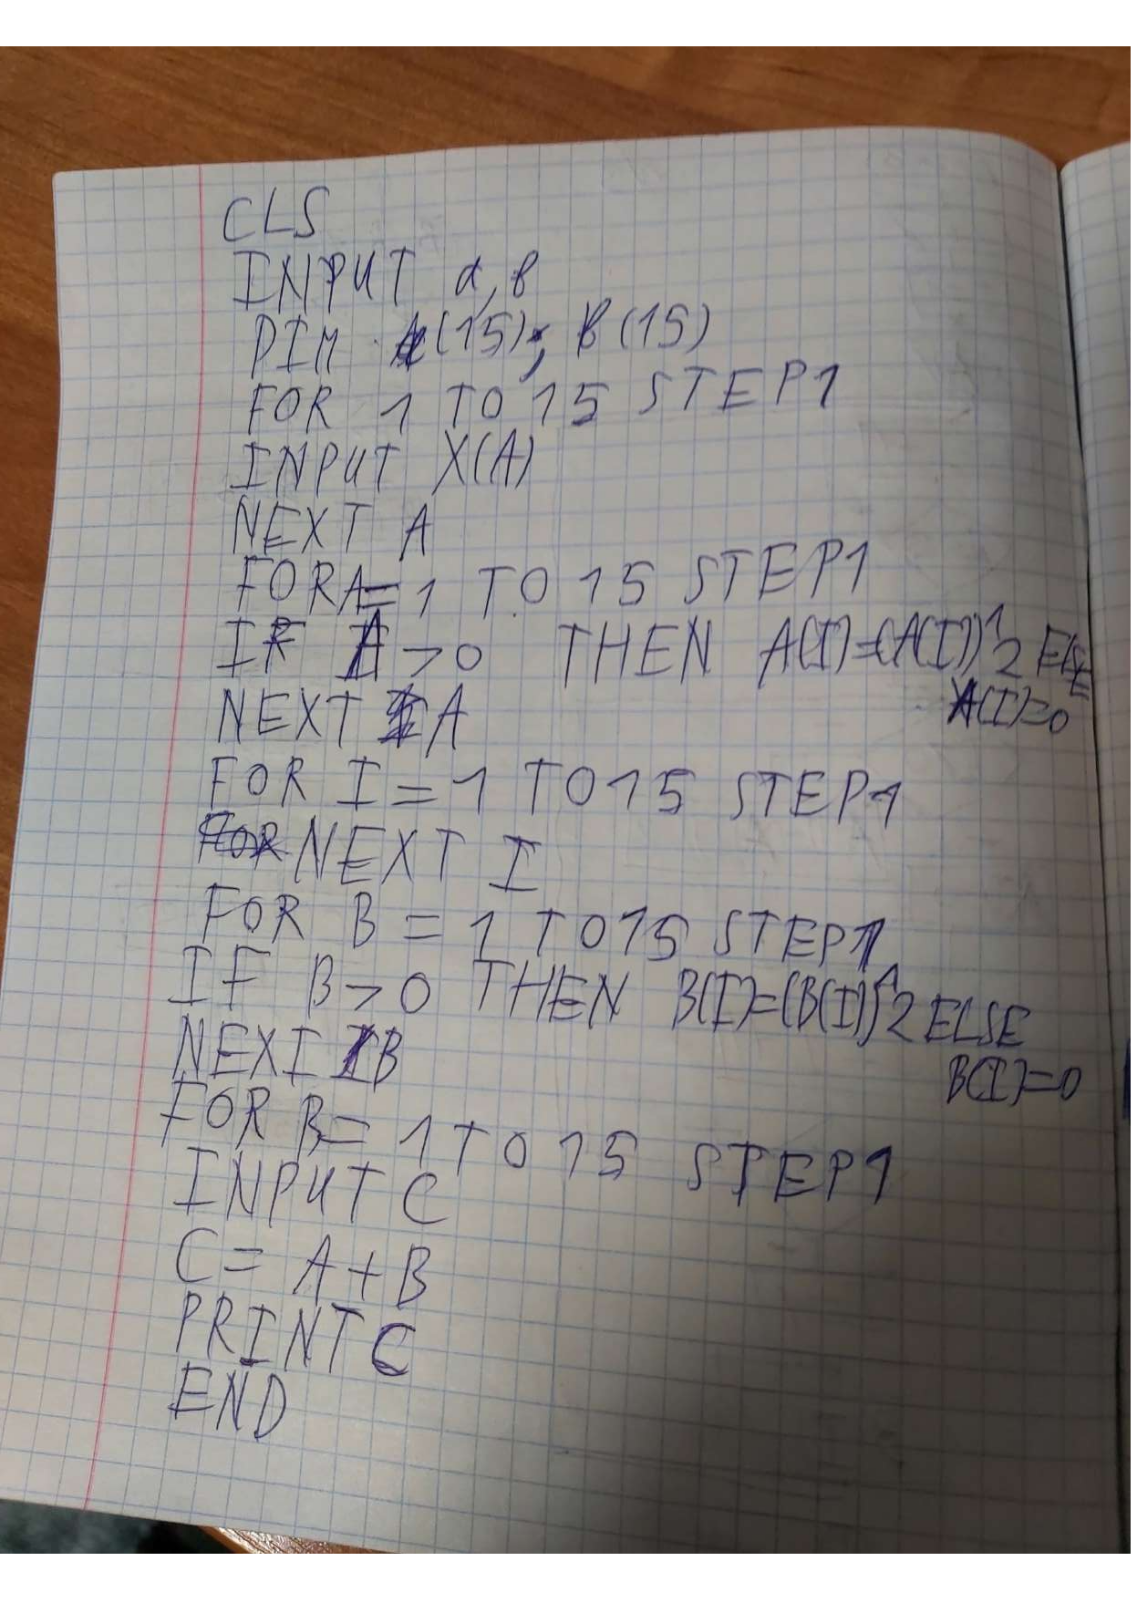 CLS
INPUT a, b
DIM A(15); B(15)
FOR 1 TO 15 STEP1
INPUT X(A)
NEXT A
FOR A=1 TO 15 STEP1
IF A>0 THEN A(I)=(A(I))^2 ELSE
A(I)=0
NEXT A
FOR I=1 TO15 STEP1
NEXT I
FOR B=1 TO15 STEP1
IF B>0 THEN B(I)=(B(I))^2 ELSE
B(I)=0
NEXT B
FOR B=1 TO 15 STEP1
INPUT C
C= A+B
PRINT C
END